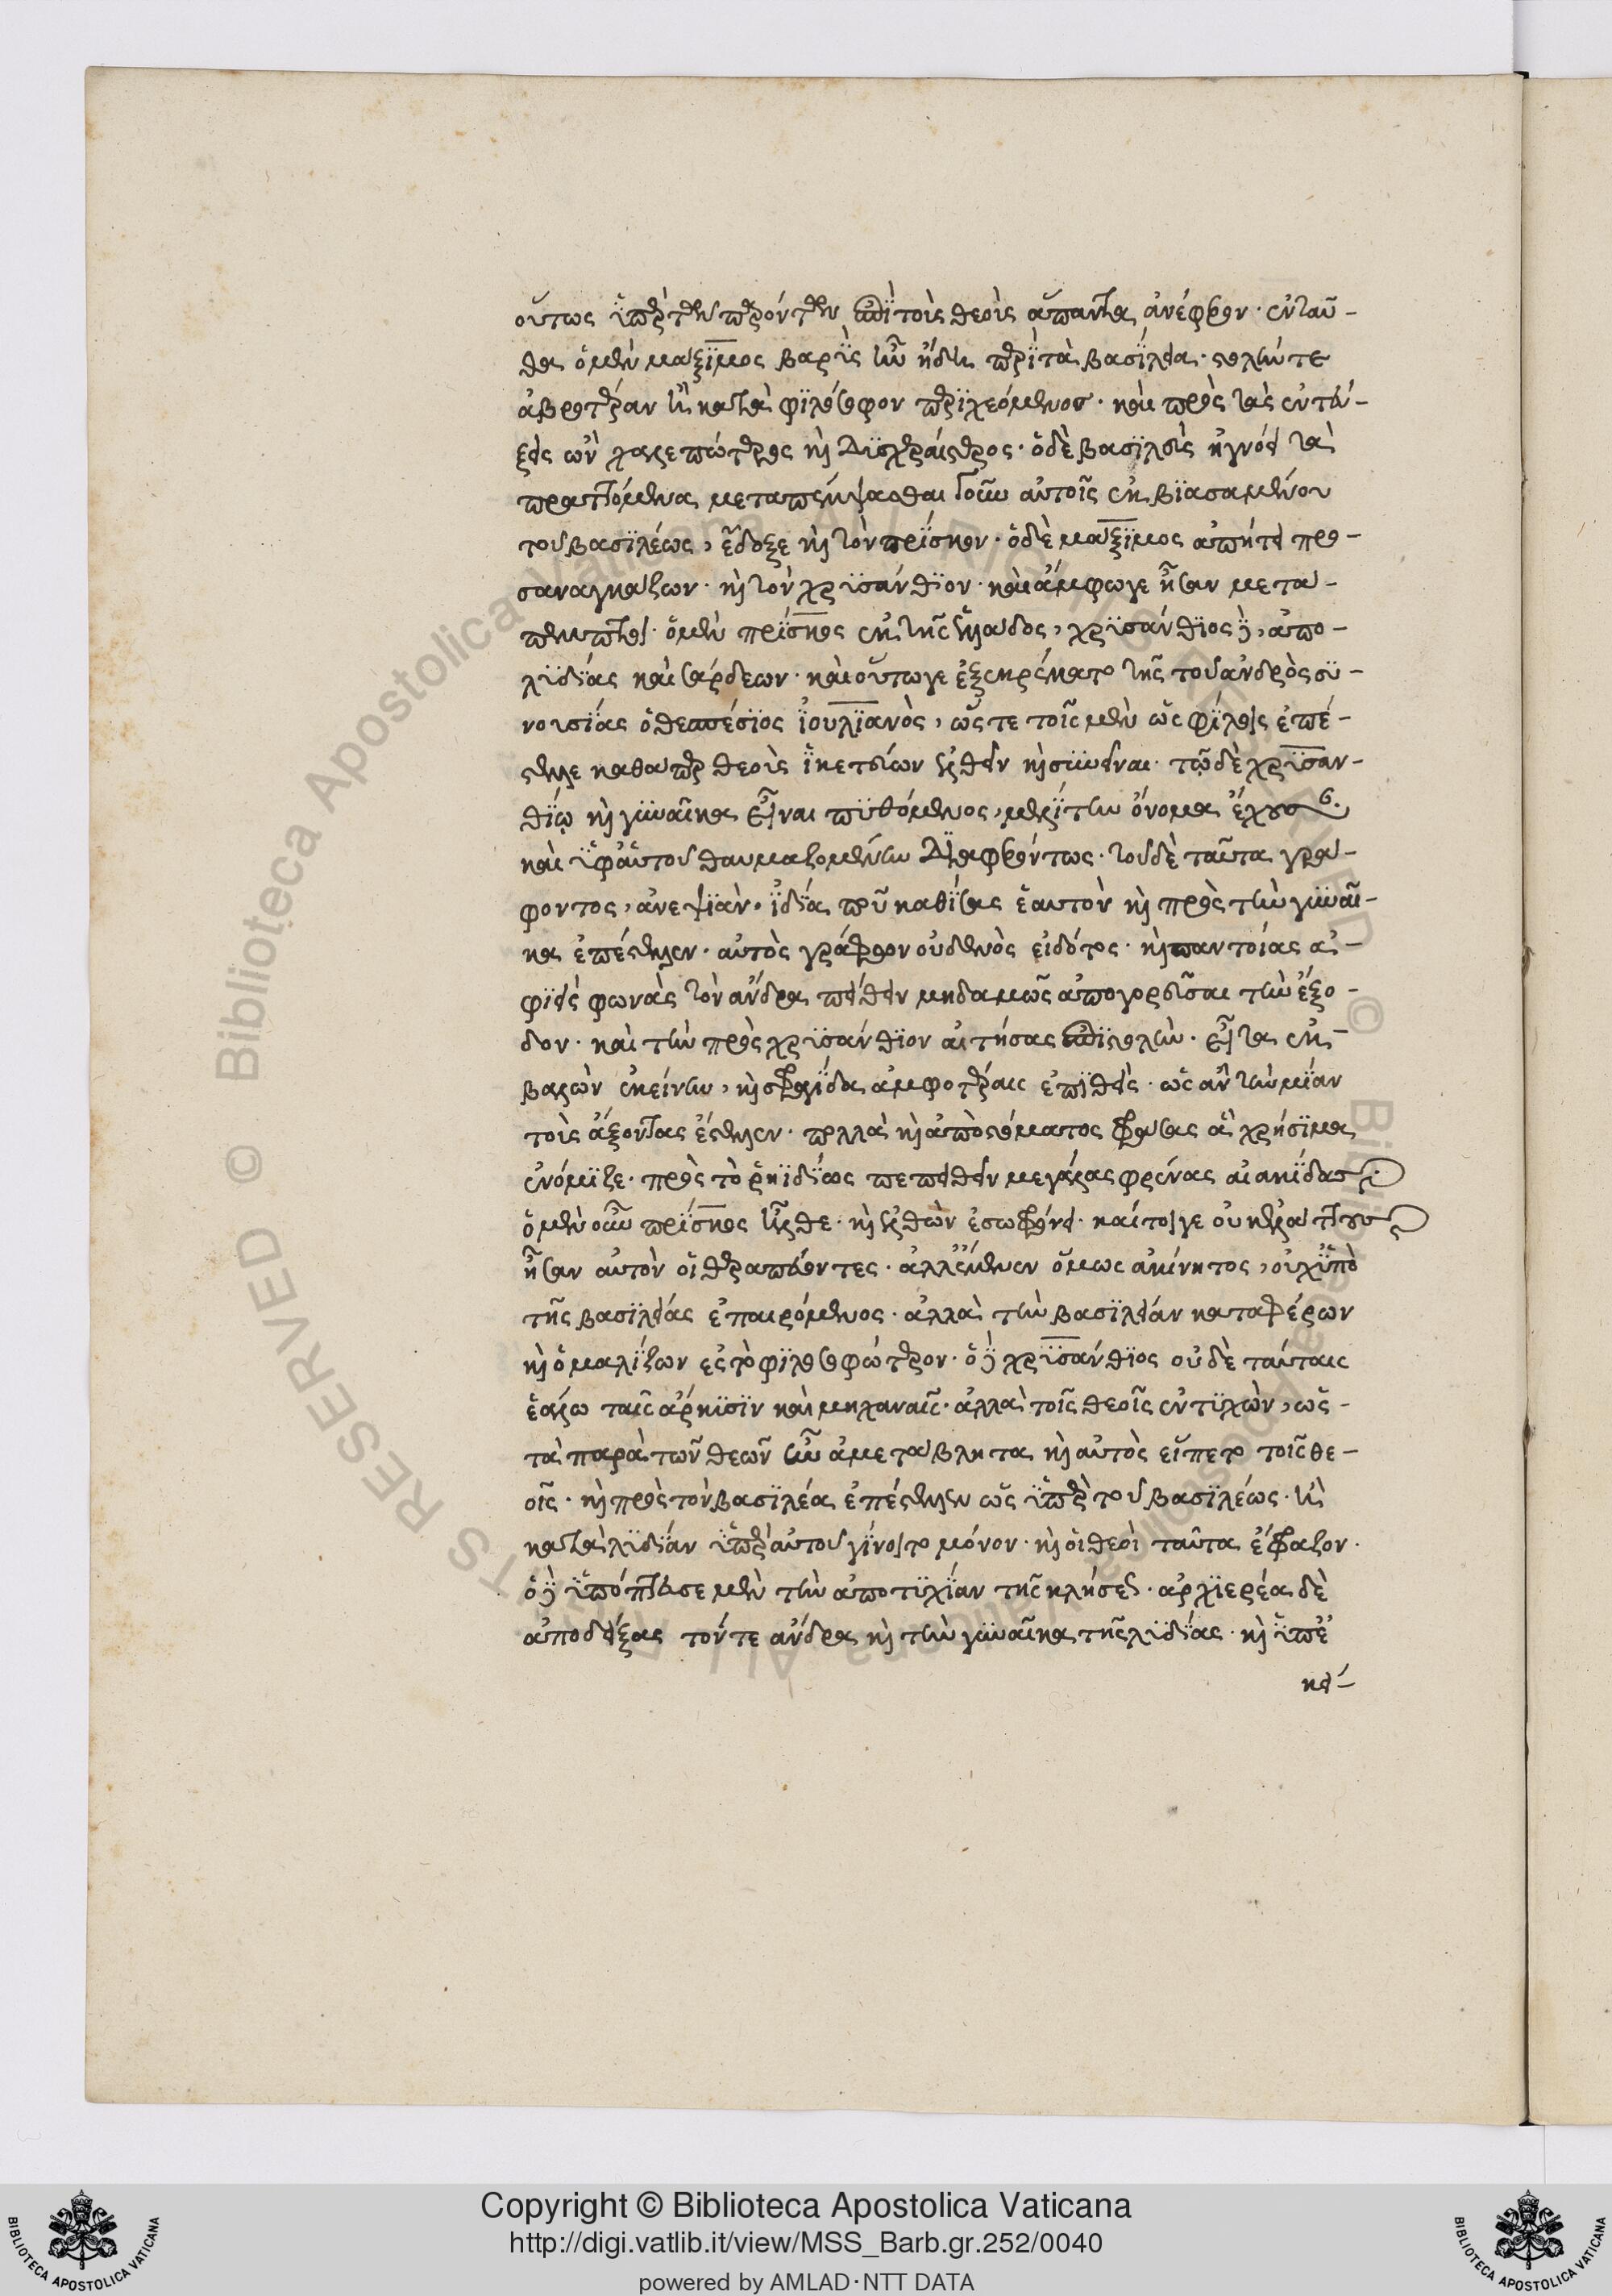 οὕτως ὑπὲρ τῶν παρόντων ἐπὶ τοῖς θεοῖς ἅπαντα ἀνέφερον. ἐνταῦ-
θα ὁ μὲν μάξιμος βαρὺς ἦν ἤδη περὶ τὰ βασίλεια. στολήν τε
ἁβροτέραν ἢ κατὰ φιλόσοφον περιχεόμενος. καὶ πρὸς τὰς ἐντεύ-
ξεις ὢν χαλεπώτερος καὶ δυσχερέστερος. ὁ δὲ βασιλεὺς ἠγνόει τὰ
πραττόμενα μεταπέμψασθαι γοῦν αὐτοῖς ἐκβιασαμένου
τοῦ βασιλέως, ἔδοξε καὶ τὸν πρίσκον. ὁ δὲ μάξιμος ἀπήτει προ-
σαναγκάζων. καὶ τὸν χρυσάνθιον. καὶ ἄμφω γε ἦσαν μετά-
πεμπτοι. ὁ μὲν πρίσκος ἐκ τῆς ἑλλάδος, χρυσάνθιος δὲ, ἀπὸ
λυδίας καὶ σάρδεων. καὶ οὕτω γε ἐξεκρέματο τῆς τοῦ ἀνδρὸς συ-
νουσίας ὁ θεσπέσιος ἰουλιανὸς, ὥστε τοῖς μὲν ὡς φίλοις ἐπέ-
στελλε καθάπερ θεοὺς ἱκετεύων ἐλθεῖν καὶ συνεῖναι. τῷ δὲ χρυσαν-
θίῳ καὶ γυναῖκα εἶναι πυθόμενος, μελίτην ὄνομα ἔχουσαν.
καὶ ὑφ' αὑτοῦ θαυμαζομένην διαφερόντως. τοῦ δὲ ταῦτα γρά-
φοντος, ἀνεψιὰν. ἰδίᾳ που καθίσας ἑαυτὸν καὶ πρὸς τὴν γυναῖ-
κα ἐπέστελλεν. αὐτὸς γράφων οὐδενὸς εἰδότος. καὶ παντοίας ἀ-
φιεὶς φωνὰς τὸν ἄνδρα πείθειν μηδαμῶς ἀπαγορεῦσαι τὴν ἔξο-
δον. καὶ τὴν πρὸς χρυσάνθιον αἰτήσας ἐπιστολὴν. εἶτα ἐμ-
βαλὼν ἐκείνην, καὶ σφραγῖδα ἀμφοτέραις ἐπιθεὶς. ὡς ἂν τὴν μίαν
τοὺς ἄξοντας ἔστελλεν. πολλὰ καὶ ἀπὸ στόματος φράσας ἃ χρήσιμα
ἐνόμιζε. πρὸς τὸ ῥηϊδίως πεπιθεῖν μεγάλας φρένας αἰακίδαο.
ὁ μὲν οὖν πρίσκος ἦλθε. καὶ ἐλθὼν ἐσωφρόνει. καίτοι γε οὐκ ἐλάττους
ἦσαν αὐτὸν οἱ θεραπεύοντες. ἀλλ' ἔμενεν ὅμως ἀκίνητος, οὐχ ὑπὸ
τῆς βασιλείας ἐπαιρόμενος. ἀλλὰ τὴν βασιλείαν καταφέρων
καὶ ὁμαλίζων ἐς τὸ φιλοσοφώτερον. ὁ δὲ χρυσάνθιος οὐδὲ ταύταις
ἑάλω ταῖς ἄρκυσιν καὶ μηχαναῖς. ἀλλὰ τοῖς θεοῖς ἐντυχὼν, ὡς
τὰ παρὰ τῶν θεῶν ἦν ἀμετάβλητα καὶ αὐτὸς εἵπετο τοῖς θε-
οῖς. καὶ πρὸς τὸν βασιλέα ἐπέστελλεν ὡς ὑπὲρ τοῦ βασιλέως. ἡ
κατὰ λυδίαν ὑπὲρ αὐτοῦ γίνοιτο μόνον. καὶ οἱ θεοὶ ταῦτα ἔφραζον.
ὁ δὲ ὑπόπτευσε μὲν τὴν ἀποτυχίαν τῆς κλήσεως. ἀρχιερέα δὲ
ἀποδείξας τόν τε ἄνδρα καὶ τὴν γυναῖκα τῆς λυδίας. καὶ ὑπ' ἐ
κεί-
Copyright © Biblioteca Apostolica Vaticana
http://digi.vatlib.it/view/MSS_Barb.gr.252/0040
powered by AMLAD·NTT DATA